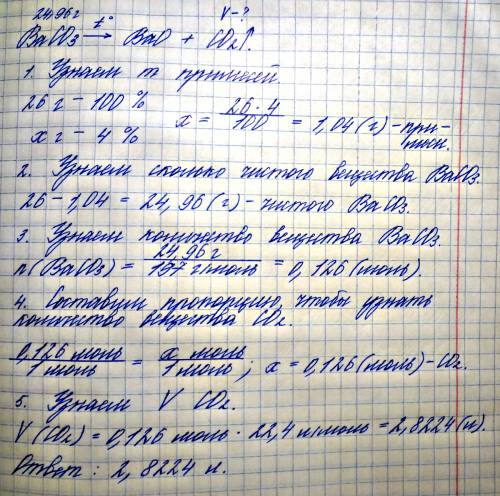 24,96 г V - ?
BaCO₃ t°→ BaO + CO₂↑.
1. Узнаем m примесей.
26 г – 100 %
x г – 4 %
x = 26 · 4 / 100 = 1,04 (г) – при-
месн.
2. Узнаем сколько чистого вещества BaCO₃.
26 – 1,04 = 24,96 (г) – чистого BaCO₃.
3. Узнаем количество вещества BaCO₃.
n(BaCO₃) = 24,96 г / 197 г/моль = 0,126 (моль).
4. Составим пропорцию, чтобы узнать
количество вещества CO₂.
0,126 моль / 1 моль = x моль / 1 моль ; x = 0,126 (моль) – CO₂.
5. Узнаем V CO₂.
V (CO₂) = 0,126 моль · 22,4 л/моль = 2,8224 (л).
Ответ : 2,8224 л.